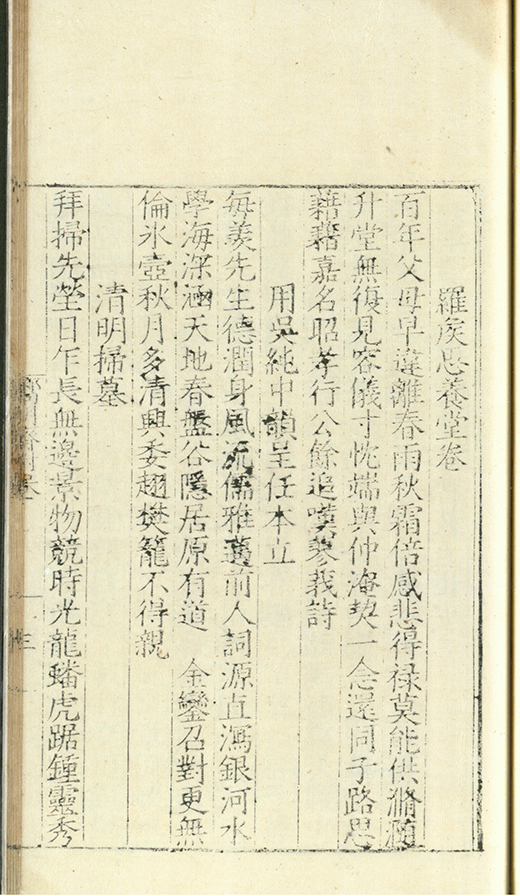 羅侯思養堂卷
百年父母早違離春雨秋霜倍感悲得祿莫能供滫瀡
升堂無復見容儀寸忱端與仲淹契一念還同子路思
藉藉嘉名昭孝行公餘追嘆蓼莪詩
用吳純中韻呈任本立
每羨先生德潤身風流儒雅邁前人詞源直瀉銀河水
學海深涵天地春盤谷隱居原有道 金鑾召對更無
倫氷壺秋月多清興委翅樊籠不得親
清明掃墓
拜掃先塋日乍長無邊景物競時光龍蟠虎踞鍾靈秀